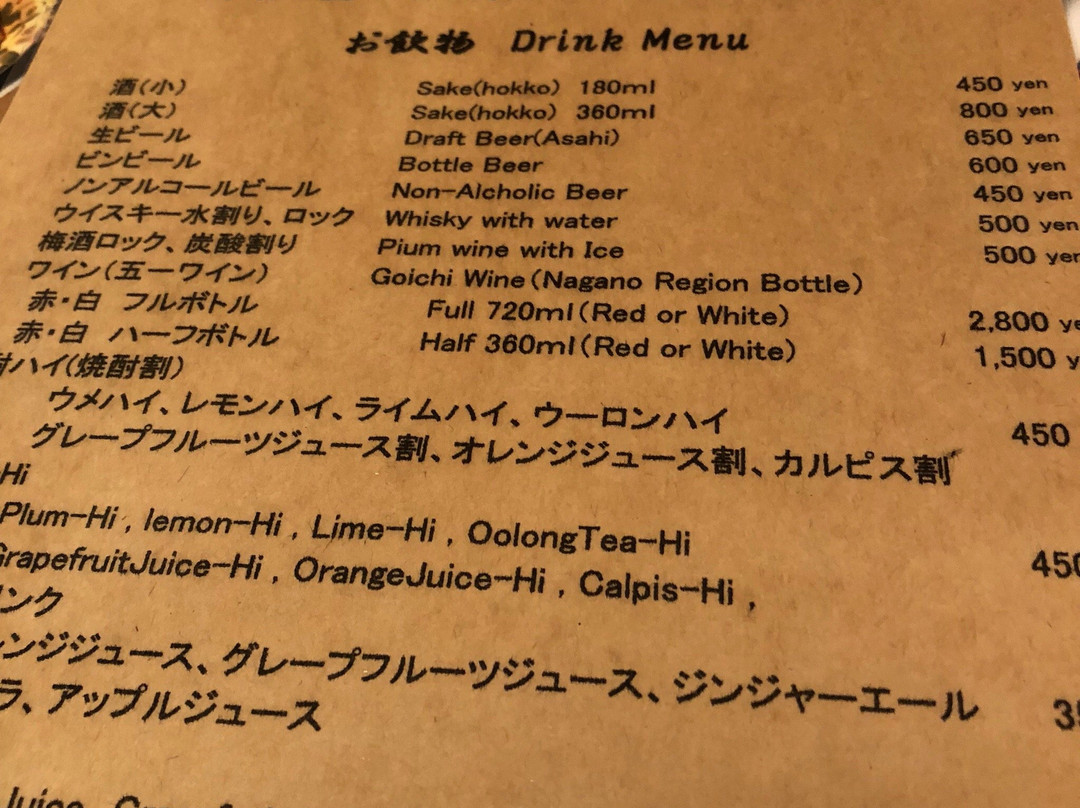 お飲物 Drink Menu
酒(小) Sake(hokko) 180ml 450 yen
酒(大) Sake(hokko) 360ml 800 yen
生ビール Draft Beer(Asahi) 650 yen
ビンビール Bottle Beer 600 yen
ノンアルコールビール Non-Alcholic Beer 450 yen
ウイスキー水割り、ロック Whisky with water 500 yen
梅酒ロック、炭酸割り Pium wine with Ice 500 yen
ワイン(五一ワイン) Goichi Wine(Nagano Region Bottle)
赤・白 フルボトル Full 720ml(Red or White) 2,800 ye
赤・白 ハーフボトル Half 360ml(Red or White) 1,500 y
酎ハイ(焼酎割)
ウメハイ、レモンハイ、ライムハイ、ウーロンハイ 450
グレープフルーツジュース割、オレンジジュース割、カルピス割
Hi
Plum-Hi , lemon-Hi , Lime-Hi , OolongTea-Hi 450
GrapefruitJuice-Hi , OrangeJuice-Hi , Calpis-Hi ,
ンク
ンジジュース、グレープフルーツジュース、ジンジャーエール
ラ、アップルジュース
Juice